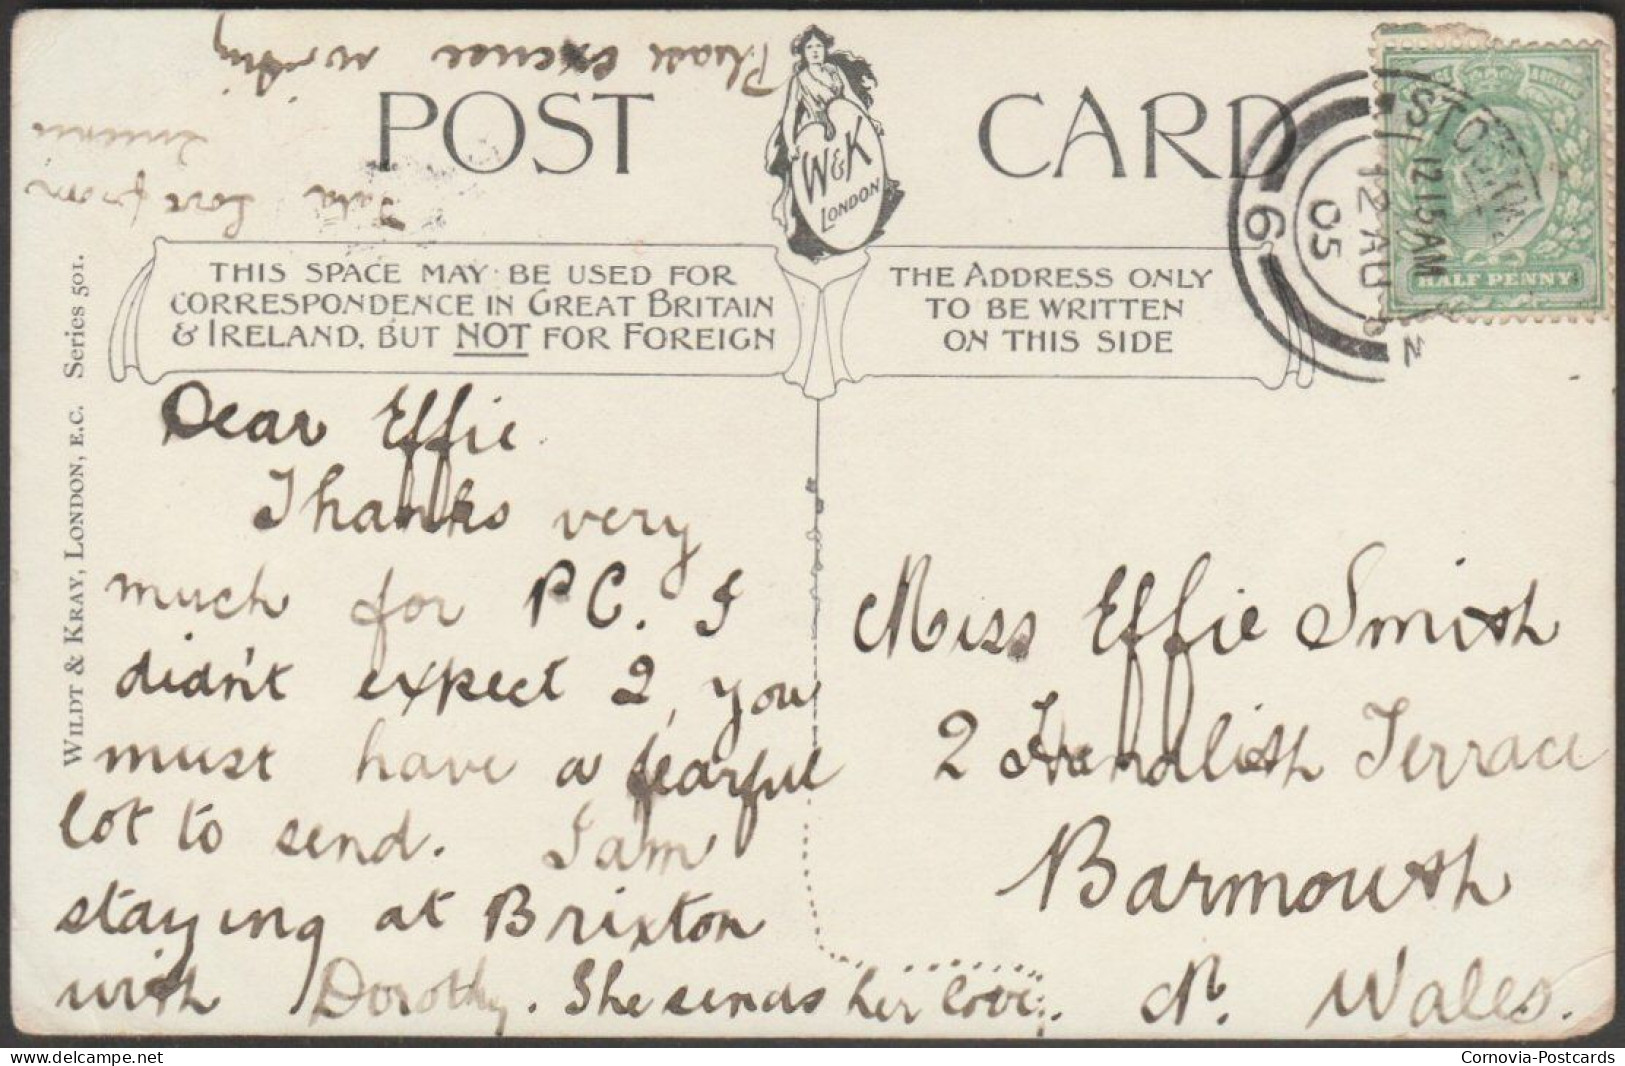 Please excuse writing
Love from
POST CARD
W&K
LONDON
THIS SPACE MAY BE USED FOR
CORRESPONDENCE IN GREAT BRITAIN
& IRELAND, BUT NOT FOR FOREIGN
THE ADDRESS ONLY
TO BE WRITTEN
ON THIS SIDE
12 15 AM
12 AU
05
6
HALF PENNY
WILDT & KRAY, LONDON, E.C. Series 501.
Dear Effie.
Thanks very
much for PC. I
didn't expect 2, you
must have a fearful
lot to send. I am
staying at Brixton
with Dorothy. She sends her love.
Miss Effie Smith
2 Hendlish Terrace
Barmouth
N. Wales.
Cornovia-Postcards